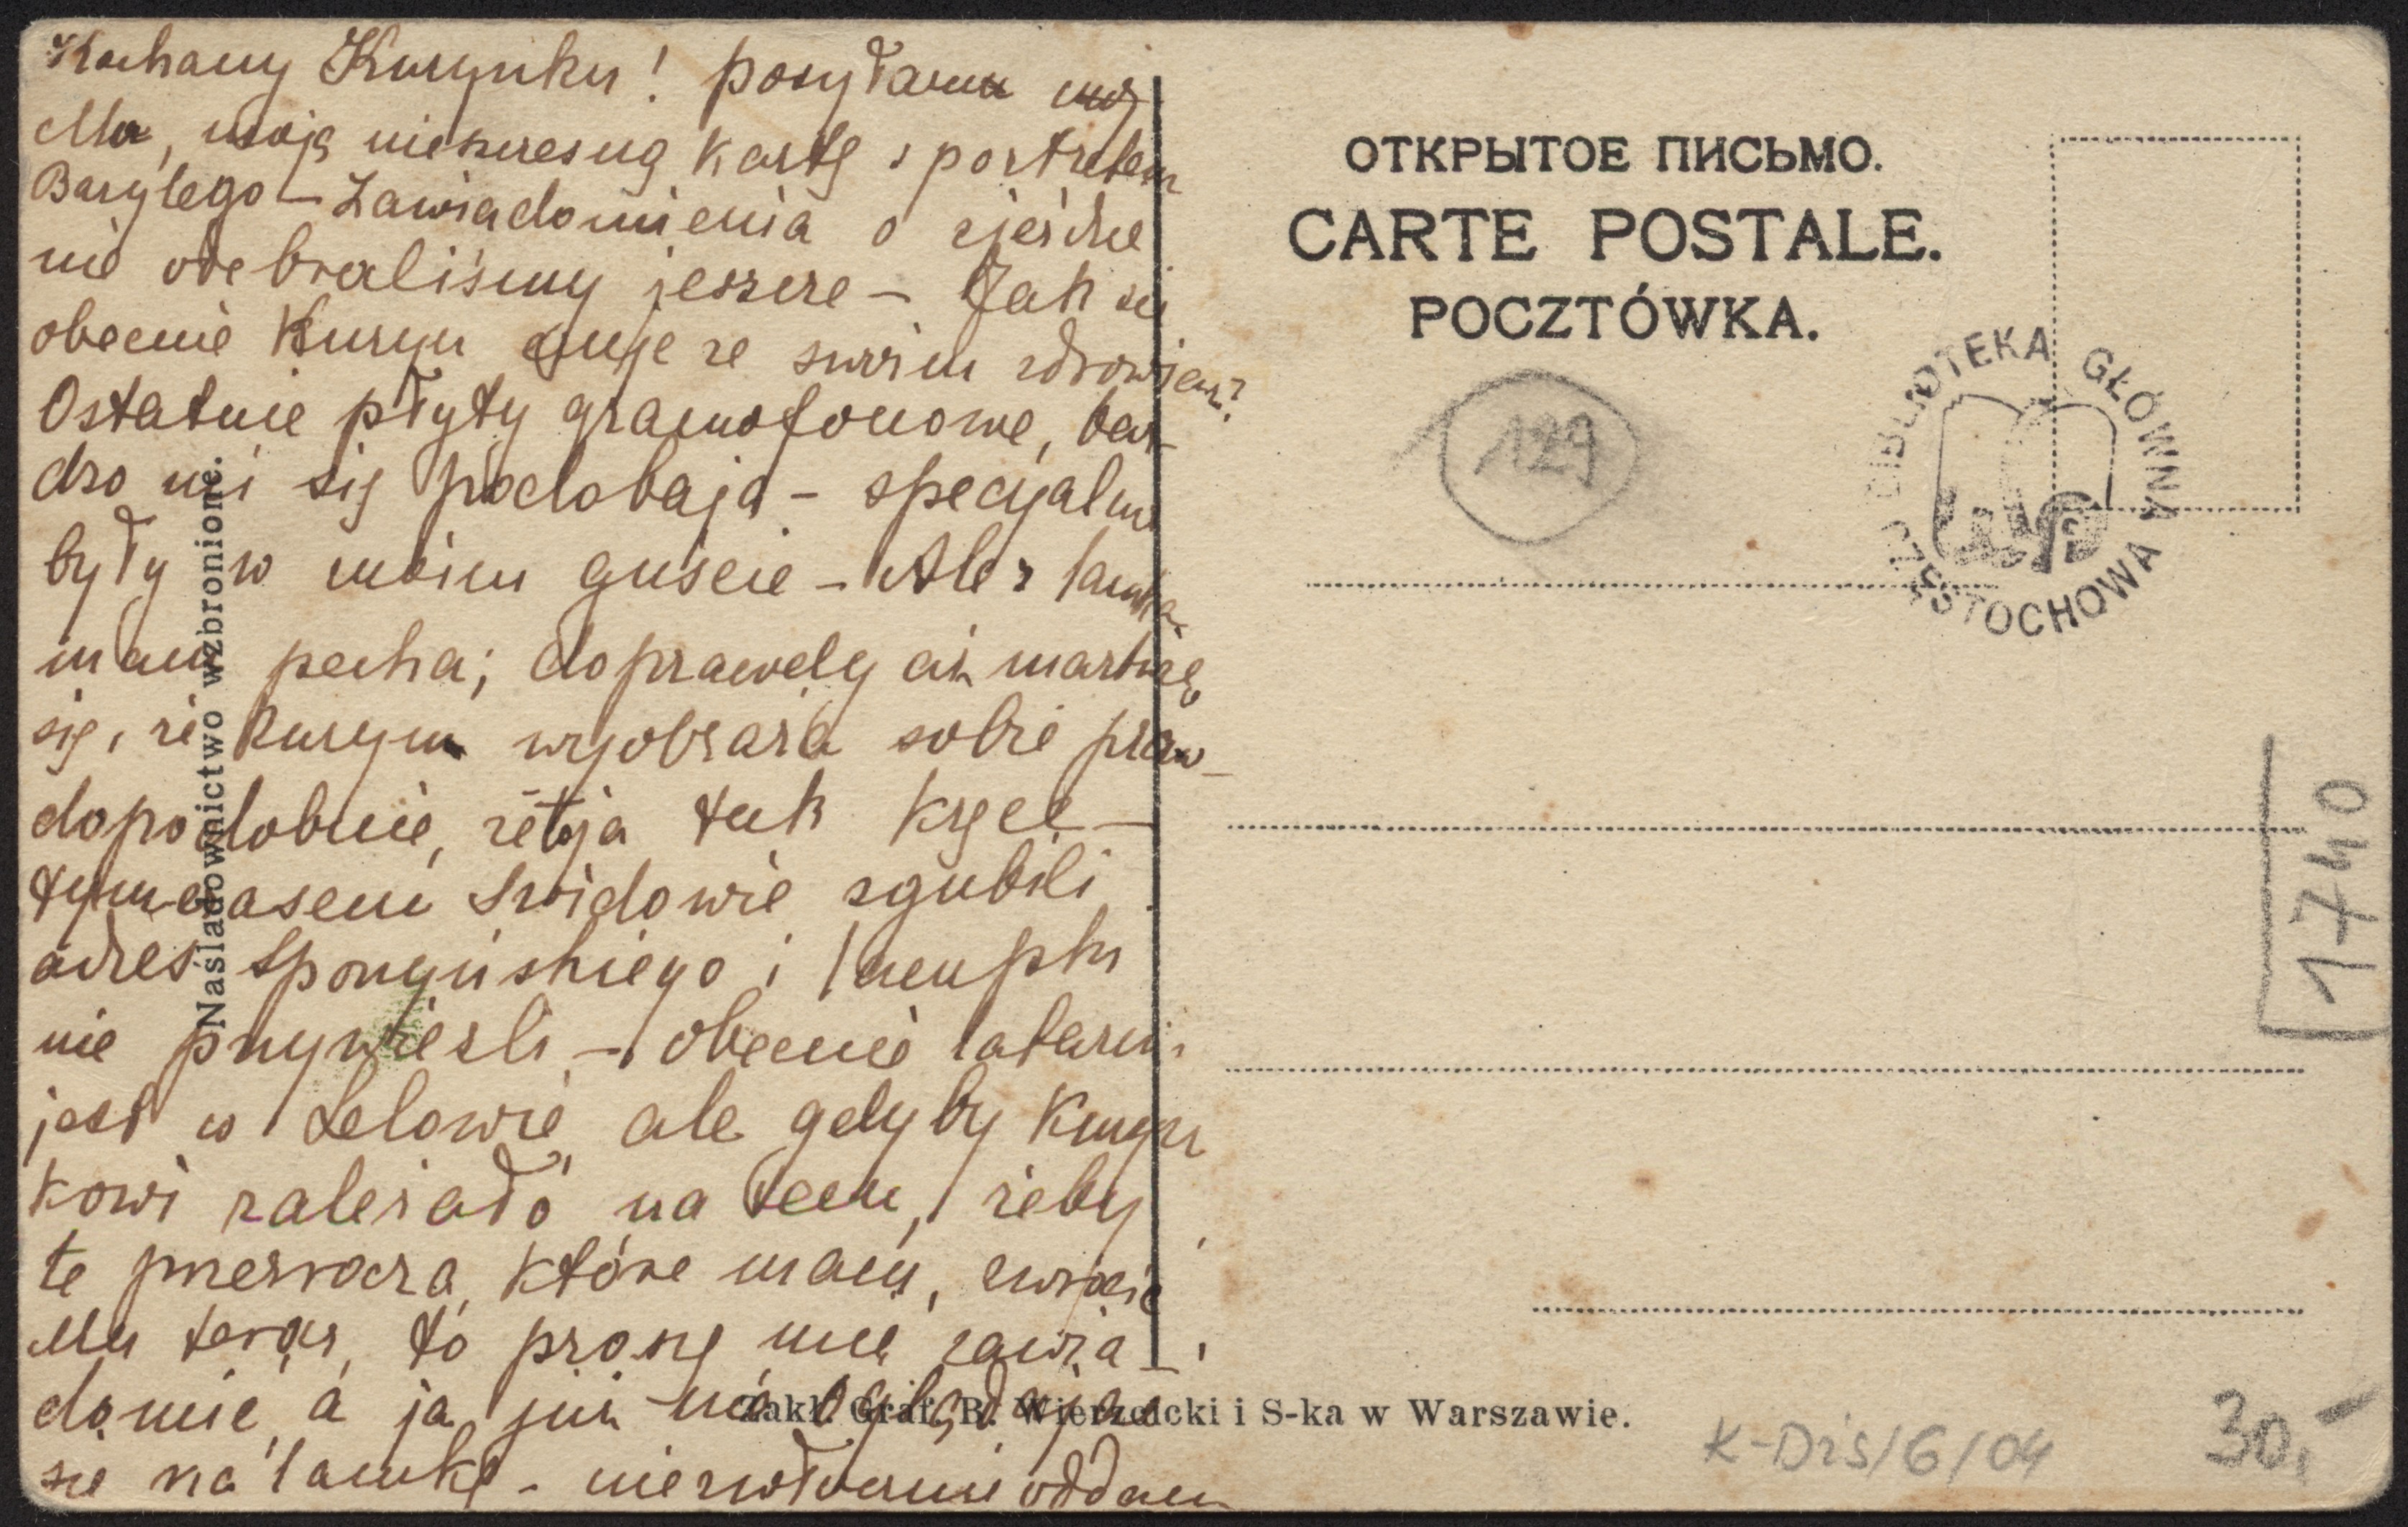 Kochany Kuzynku! posyłam
Mu, moją niekreśną kartę z portretem
Bazylego – Zawiadomienia o zjeździe
nie odebraliśmy jeszcze – Jak się
obecnie Kuzyn czuje ze swoim zdrowiem?
Ostatnie płyty gramofonowe, bar-
dzo mi się podobają – specyjalnie
były w moim guście – Ale z lampką
mam pecha; doprawdy aż martwię
się, że Kuzyn wyobraża sobie praw-
dopodobnie, że to ja tak kręcę –
tymczasem Szvidowie zgubili
adres Sponyńskiego i lampki
nie przywieźli – obecnie latarnia
jest w Lelowie, ale gdyby Kuzyn
kowi zależało na tem, żeby
te przezrocza, które mam, zwrócić
Mu teraz, to proszę mię zawia-
domić, a ja już nie oglądając
się na lampkę – niezwłocznie oddam
Naśladownictwo wzbronione.
ОТКРЫТОЕ ПИСЬМО.
CARTE POSTALE.
POCZTÓWKA.
129
BIBLIOTEKA GŁÓWNA
CZĘSTOCHOWA
1740
Zakł. Graf. B. Wierzbicki i S-ka w Warszawie.
K-Dis/6/04
30,-